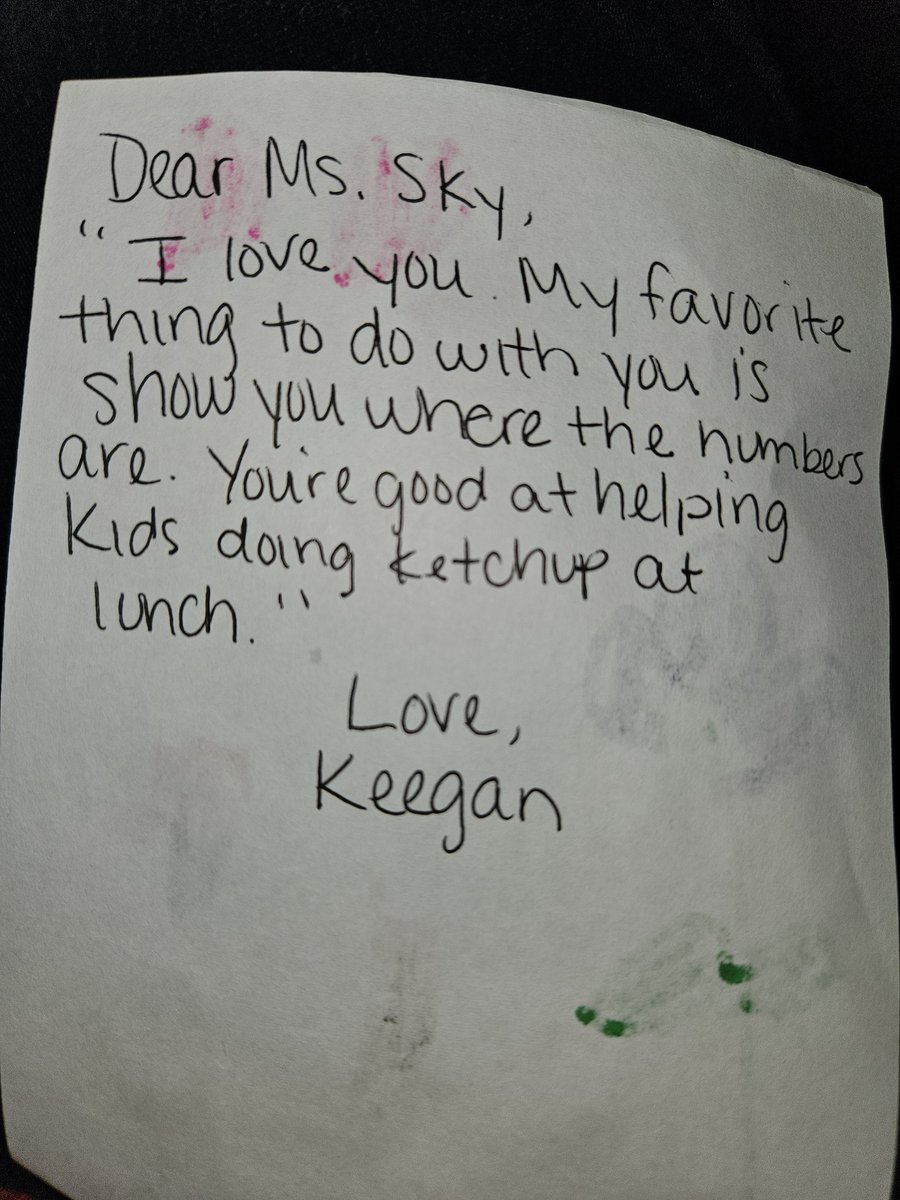 Dear Ms. Sky,
"I love you. My favorite
thing to do with you is
show you where the numbers
are. You're good at helping
kids doing ketchup at
lunch."
Love,
Keegan